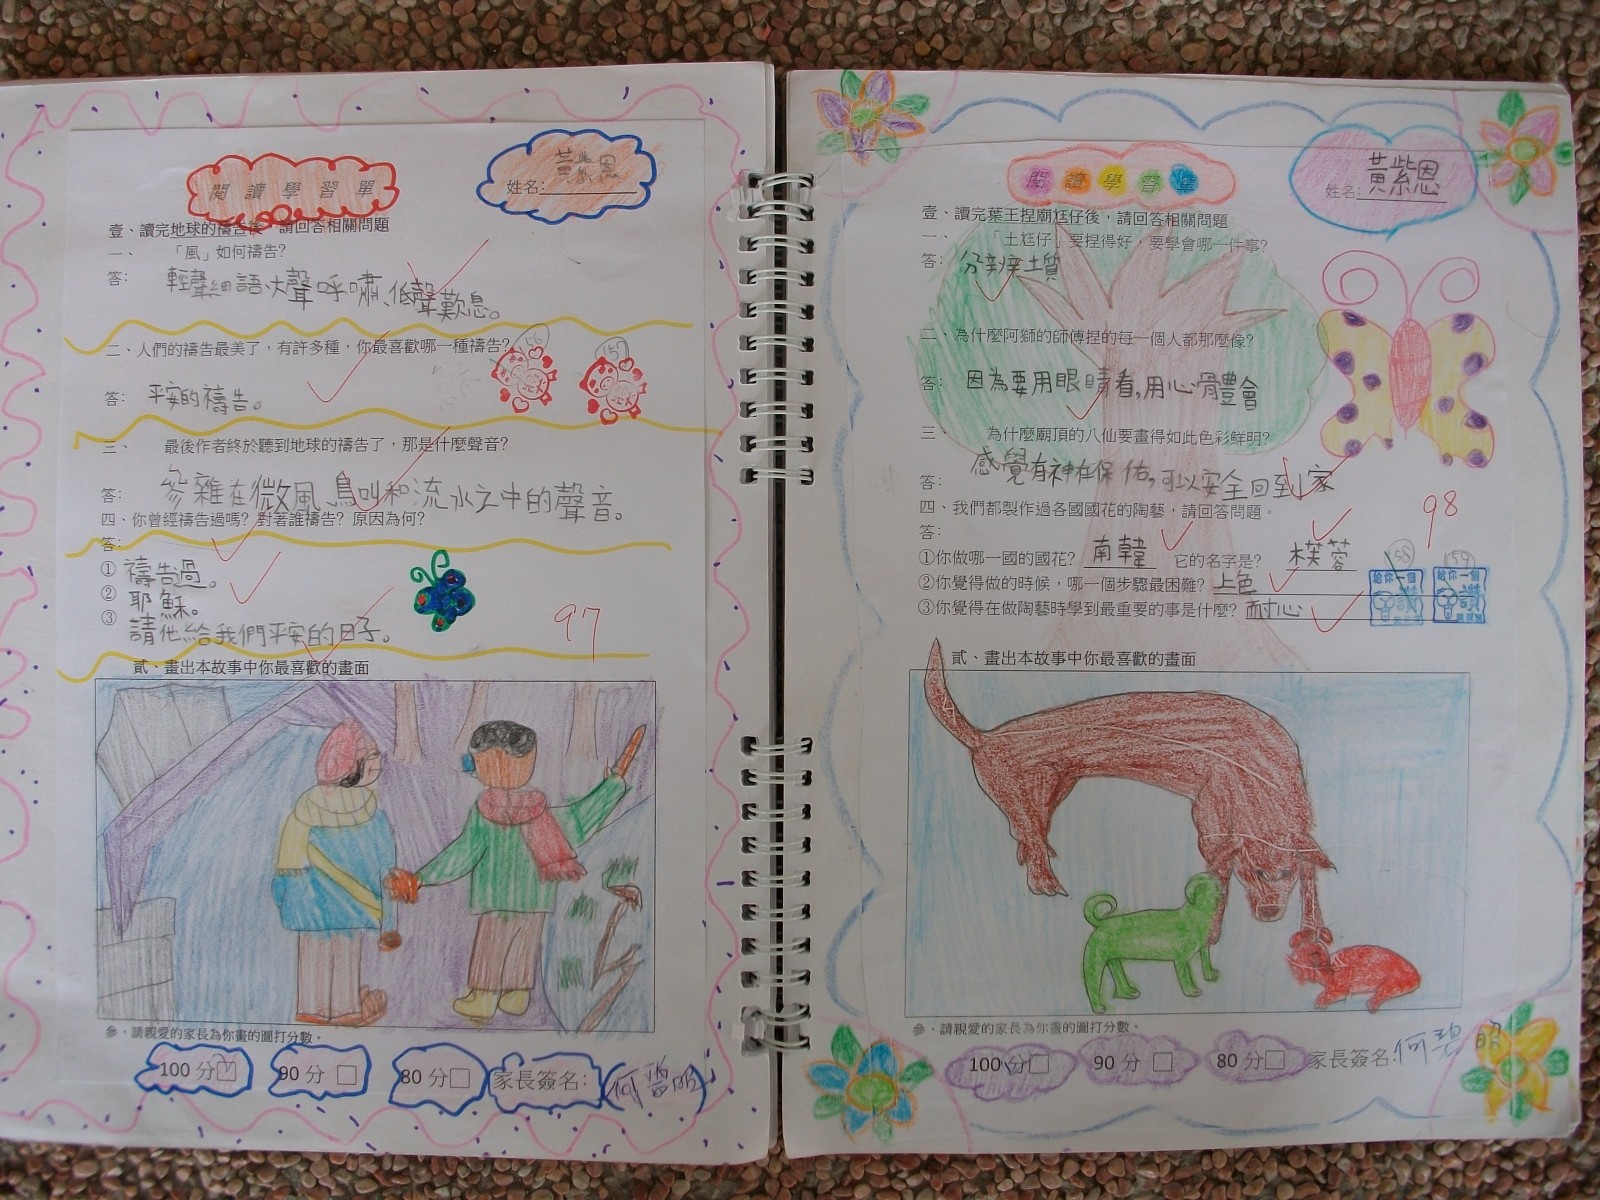 閱讀學習單
姓名:黃紫恩
壹、讀完地球的禱告後，請回答相關問題
一、「風」如何禱告?
答: 輕聲細語、大聲呼嘯、低聲歎息。
二、人們的禱告最美了，有許多種，你最喜歡哪一種禱告?
156
157
答: 平安的禱告。
三、最後作者終於聽到地球的禱告了，那是什麼聲音?
答: 參雜在微風、鳥叫和流水之中的聲音。
四、你曾經禱告過嗎? 對著誰禱告? 原因為何?
答:
① 禱告過。
② 耶穌。
③ 請他給我們平安的日子。
97
貳、畫出本故事中你最喜歡的畫面
參、請親愛的家長為你畫的圖打分數。
100 分□ 90 分 □ 80 分□ 家長簽名:
閱讀學習單
姓名:黃紫恩
壹、讀完葉王捏廟尪仔後，請回答相關問題
一、「土尪仔」要捏得好，要學會哪一件事?
答: 分辨土質
二、為什麼阿獅的師傅捏的每一個人都那麼像?
答: 因為要用眼睛看,用心體會
三、為什麼廟頂的八仙要畫得如此色彩鮮明?
答: 感覺有神在保佑,可以安全回到家
四、我們都製作過各國國花的陶藝，請回答問題。
98
答:
①你做哪一國的國花? 南韓 它的名字是? 木芙蓉
②你覺得做的時候，哪一個步驟最困難? 上色
③你覺得在做陶藝時學到最重要的事是什麼? 耐心
158
159
給你一個讚
給你一個讚
貳、畫出本故事中你最喜歡的畫面
參、請親愛的家長為你畫的圖打分數。
100 分□ 90 分 □ 80 分□ 家長簽名:何碧明